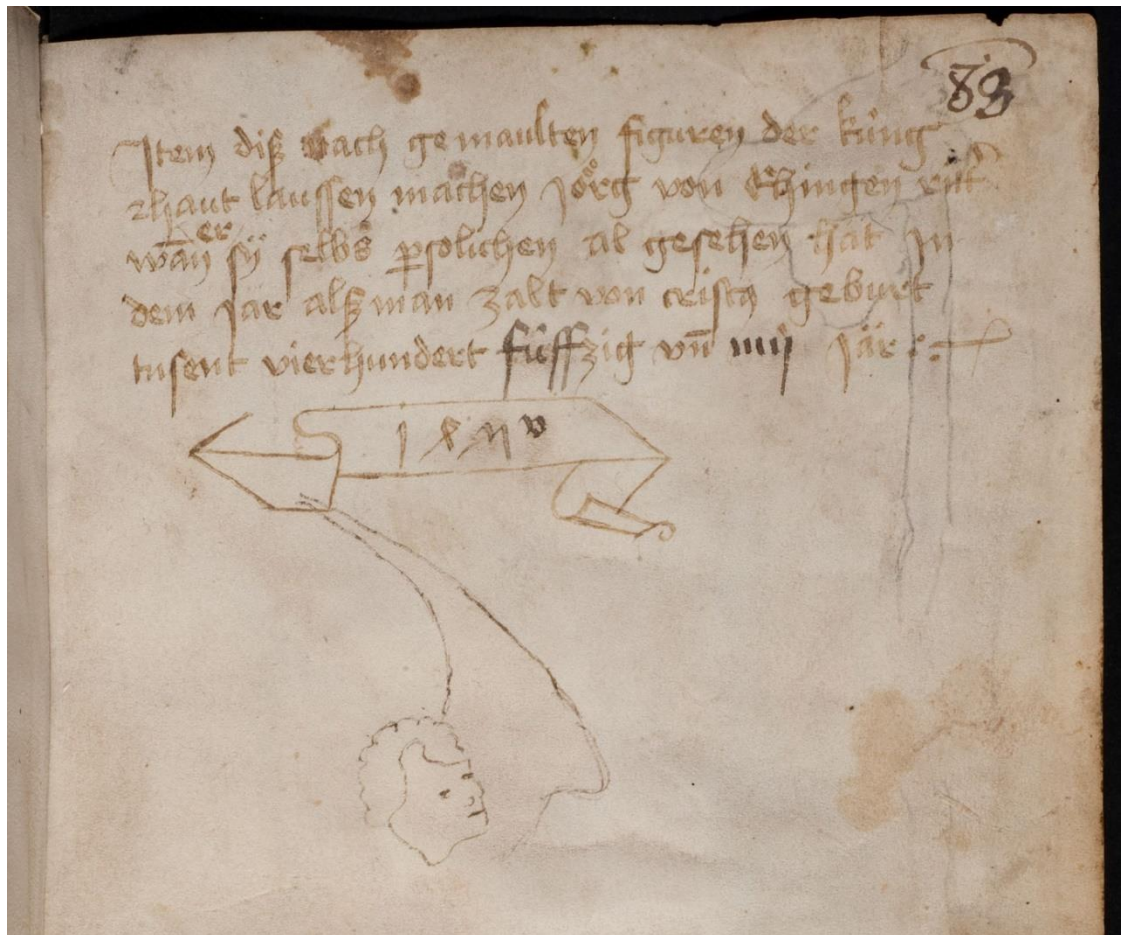 83
Item diß nach gemaulten figuren der kúng
haut laussen machen Jörg von Ehingen ritt
er
wān sÿ selbs psolichen al gesehen hat In
dem Jar alß man zalt von cristy geburt
tusent vierhundert fúffzig vn̄ iiij Jär